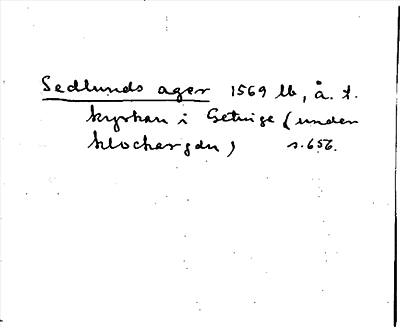 Sedlunds ager 1569 lb, å. t.
kyrkan i Getinge (under
klockargdn)   s. 656.